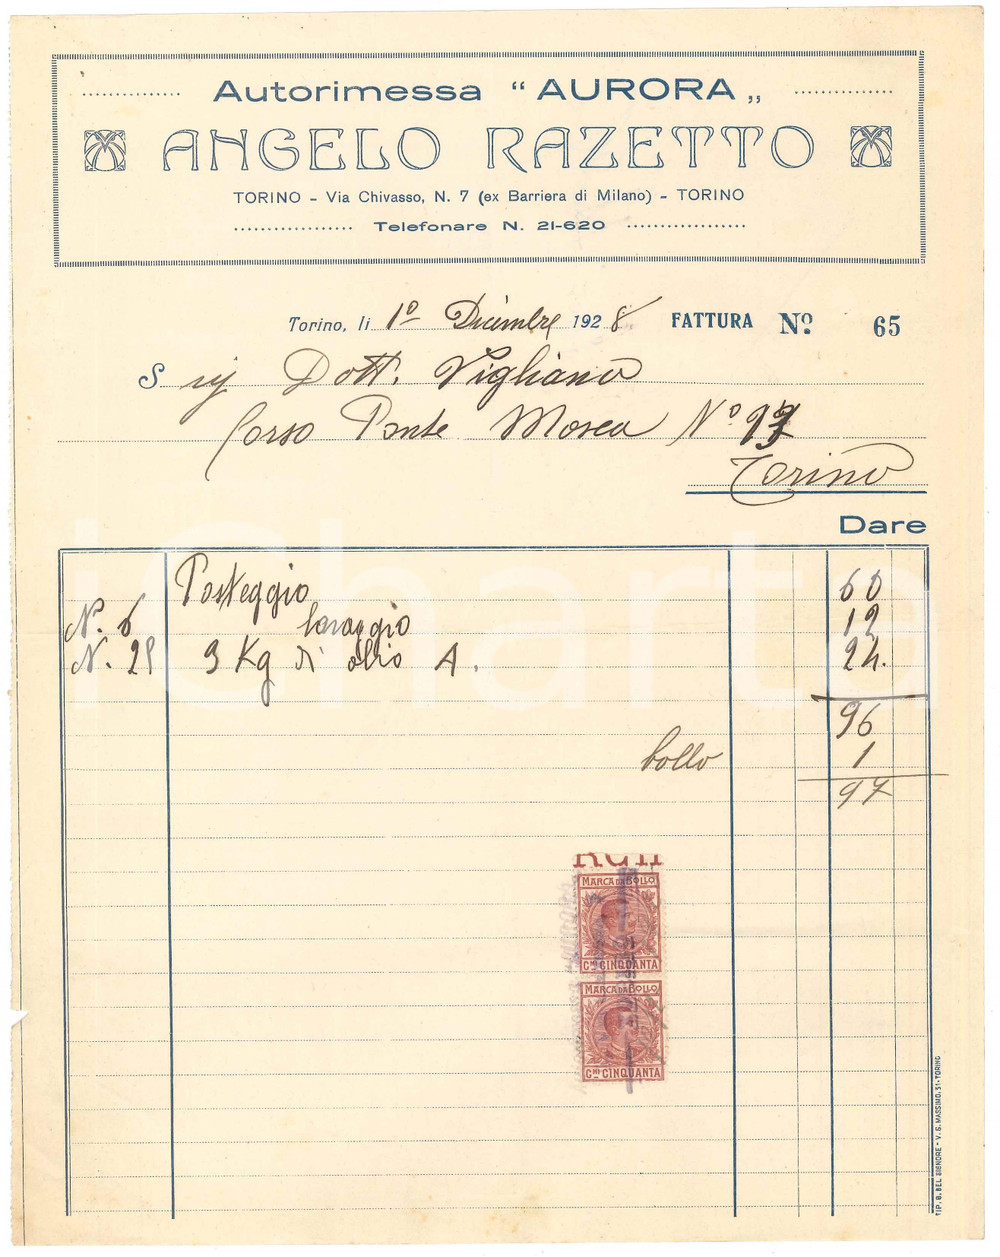 Autorimessa “ AURORA „
ANGELO RAZETTO
TORINO - Via Chivasso, N. 7 (ex Barriera di Milano) - TORINO
Telefonare N. 21-620
Torino, li 1º Dicembre 1928 FATTURA Nº 65
Sig Dott. Vigliano
Corso Ponte Mosca Nº
Torino
Dare
Posteggio 60
Nº. 6 lavaggio 12
N. 3 Kg di olio A. 24.
96
bollo 1
97
MARCA DA BOLLO
CMI CINQUANTA
MARCA DA BOLLO
CMI CINQUANTA
TIP. G. BEL SIGNORE - V. S. MASSIMO, 51 - TORINO
iCharta